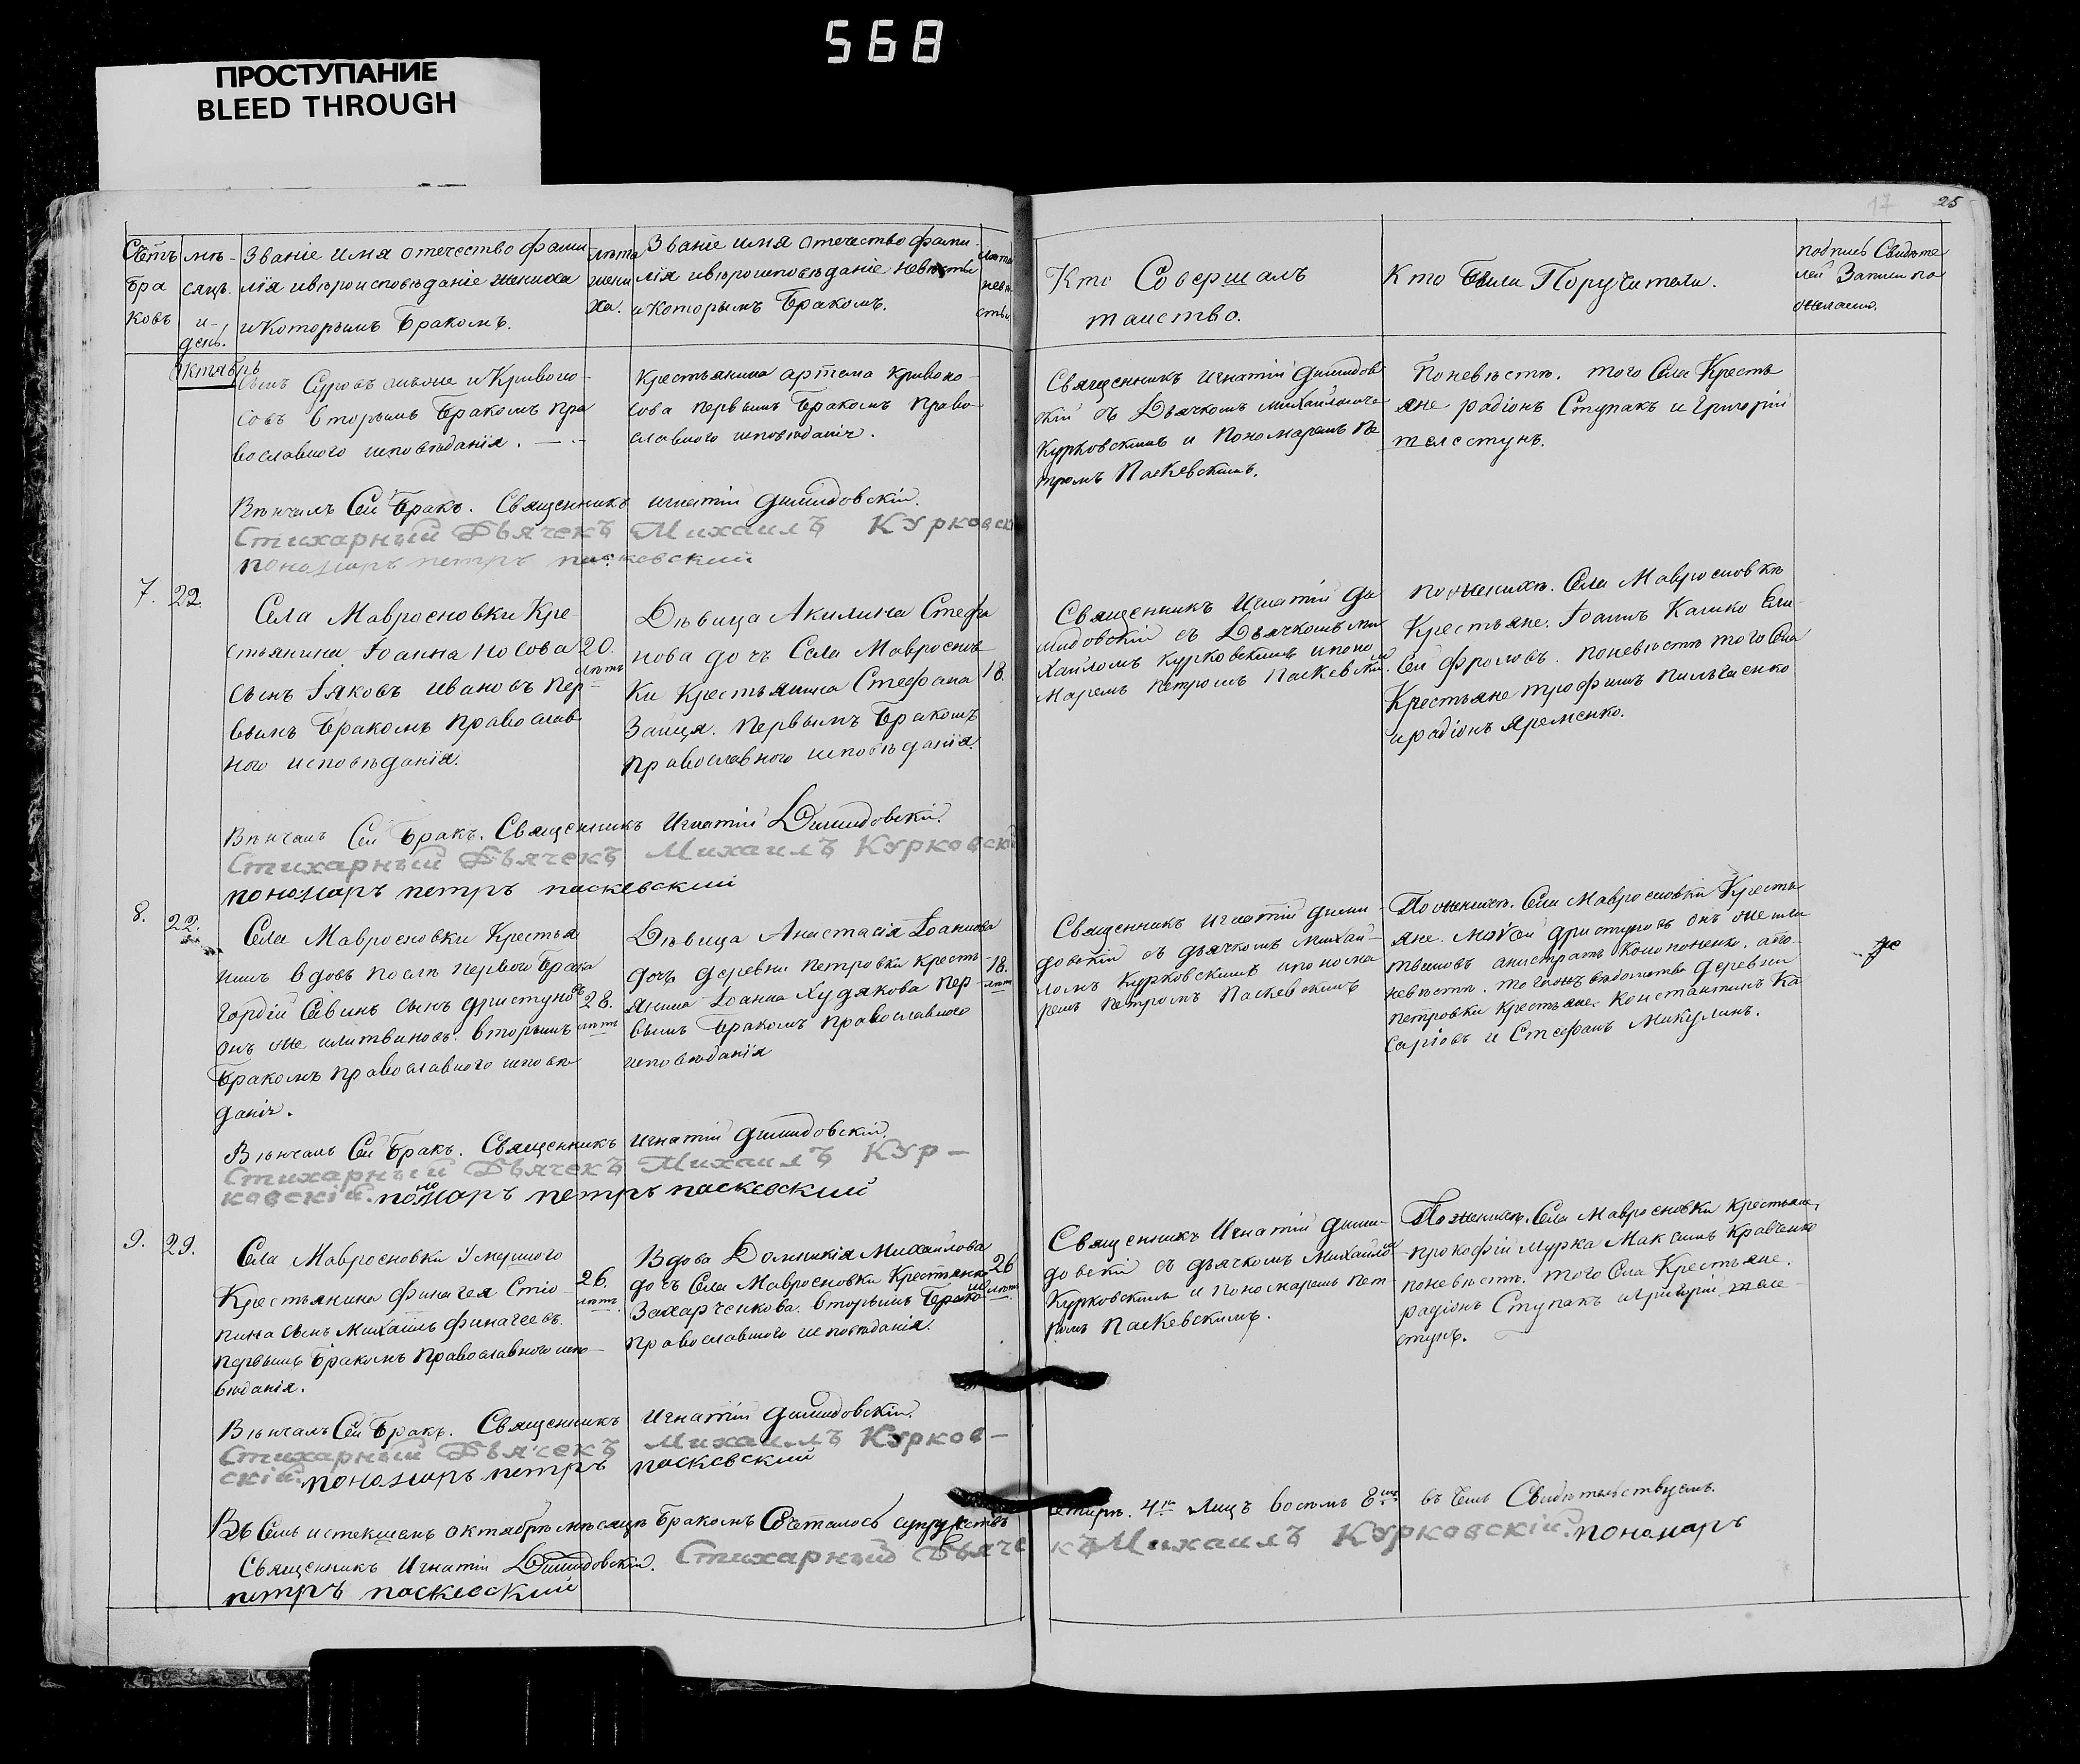 568
ПРОСТУПАНИЕ
BLEED THROUGH
17 25
Счетъ бра ковъ
мѣсяцъ и день.
Званіе имя отечество фами
лія ивѣроисповѣданіе жениха
икоторымъ бракомъ.
лѣта жени ха.
Званіе имя отечество фами
лія ивѣроисповѣданіе невѣсты
икоторымъ бракомъ.
лѣта невѣ сты
Кто Совершалъ
таиство.
Кто были Поручители.
подпись Свидѣте
лей Записи по
желанію.
Октябрь
сынъ Суровъ онъже и Кривоно
совъ вторымъ бракомъ пра
вославного исповѣданія.
крестьянина артема кривоно
сова первымъ бракомъ право
славного исповѣданія.
Священникъ игнатіи димидов
скіи съ Дьячкомъ михаиломъ
Курковскимъ и пономаремъ пе
тромъ Паскевскимъ.
Поневѣстѣ. того Села Кресть
яне радіонъ Ступакъ и Григоріи
телестунъ.
Вѣнчалъ Сей бракъ. Священникъ игнатіи димидовскіи.
Стихарный Дьячекъ Михаилъ Курковск
пономаръ петръ паскевский
7. 22.
Села Мавросновки Кре
стьянина Іоанна Носова
сынъ Іяковъ ивановъ пер
вымъ бракомъ православ
ного исповѣданія.
20. лѣтъ
Дѣвица Акилина Стефа
нова дочъ Села Мавроснов
ки Крестьянина Стефана
Заиця. первымъ бракомъ
православного исповѣданія.
18.
Священникъ Игнатіи ди
мидовскіи съ Дьячкомъ ми
хаиломъ курковскимъ ипоно
маремъ петромъ паскевским
поженихѣ. Села Мавросновкѣ
Крестьяне. Іоаннъ Калико Ели
сеи фроловъ. поневѣстѣ того Села
Крестьяне трофимъ пильгаенко
ирадіонъ Яременко.
Вѣнчалъ Сей бракъ. Священникъ Игнатіи Димидовскіи.
Стихарный Дьячекъ Михаилъ Курковск
пономаръ петръ паскевский
8. 22.
Села Мавросновки Крестья
нинъ вдовъ послѣ первого брака
Гордіи Савинъ сынъ дристуновъ
онъ же илитвиновъ. вторымъ
бракомъ православного исповѣ
данія.
28. лѣтъ
Дѣвица Анастасія Іоаннова
дочъ деревни петровки кресть
янина Іоанна Худякова пер
вымъ бракомъ православного
исповѣданія
18. лѣт
Священникъ игнатіи дими
довскіи съ дьячкомъ михаи
ломъ курковскимъ ипонома
ремъ петромъ паскевскимъ
Поженихѣ. Села Мавросновки Кресть
яне. Моѵсеи дристуновъ онъ же или
твиновъ анистратъ Кононенко. апо
невѣстѣ. тогожъ вѣдомства деревни
петровки крестьяне Константинъ Ка
саріовъ и Стефанъ Микулинъ.
Вѣнчалъ Сей бракъ. Священникъ Игнатіи димидовскіи.
Стихарный Дьячекъ Михаилъ Кур-
ковскій. пономаръ петръ паскевский
9. 29.
Села Мавросновки Умершого
Крестьянина финагея Стіо
пина сынъ Михаилъ финагеевъ.
первымъ бракомъ православного испо
вѣданія.
26. лѣтъ.
Вдова Домникія Михаилова
дочъ Села Мавросновки Крестянина
Захарченкова. вторымъ бракомъ
православного исповѣданія.
26 лѣтъ.
Священникъ Игнатіи дими
довскіи съ дьячкомъ Михаиломъ
Курковскимъ и пономаремъ пет
ромъ Паскевскимъ.
Поженихѣ. Села Мавросновки крестьяне,
прокофіи Мурка Максимъ Кравченко
поневѣстѣ. того Села Крестьяне.
радіонъ Ступакъ игригоріи теле
стунъ.
Вѣнчалъ Сей бракъ. Священникъ Игнатіи димидовскіи.
Стихарный Дьячекъ Михаилъ Курков-
скій. пономаръ петръ паскевский
Въ Семъ истекшемъ октябрѣ мѣсяцѣ бракомъ Сочеталось супружствъ четыре. 4ре Лицъ восемъ 8мъ въ чемъ Свидѣтельствуемъ.
Священникъ Игнатіи Димидовскіи. Стихарный Дьячекъ Михаилъ Курковскій. пономаръ
петръ паскевский